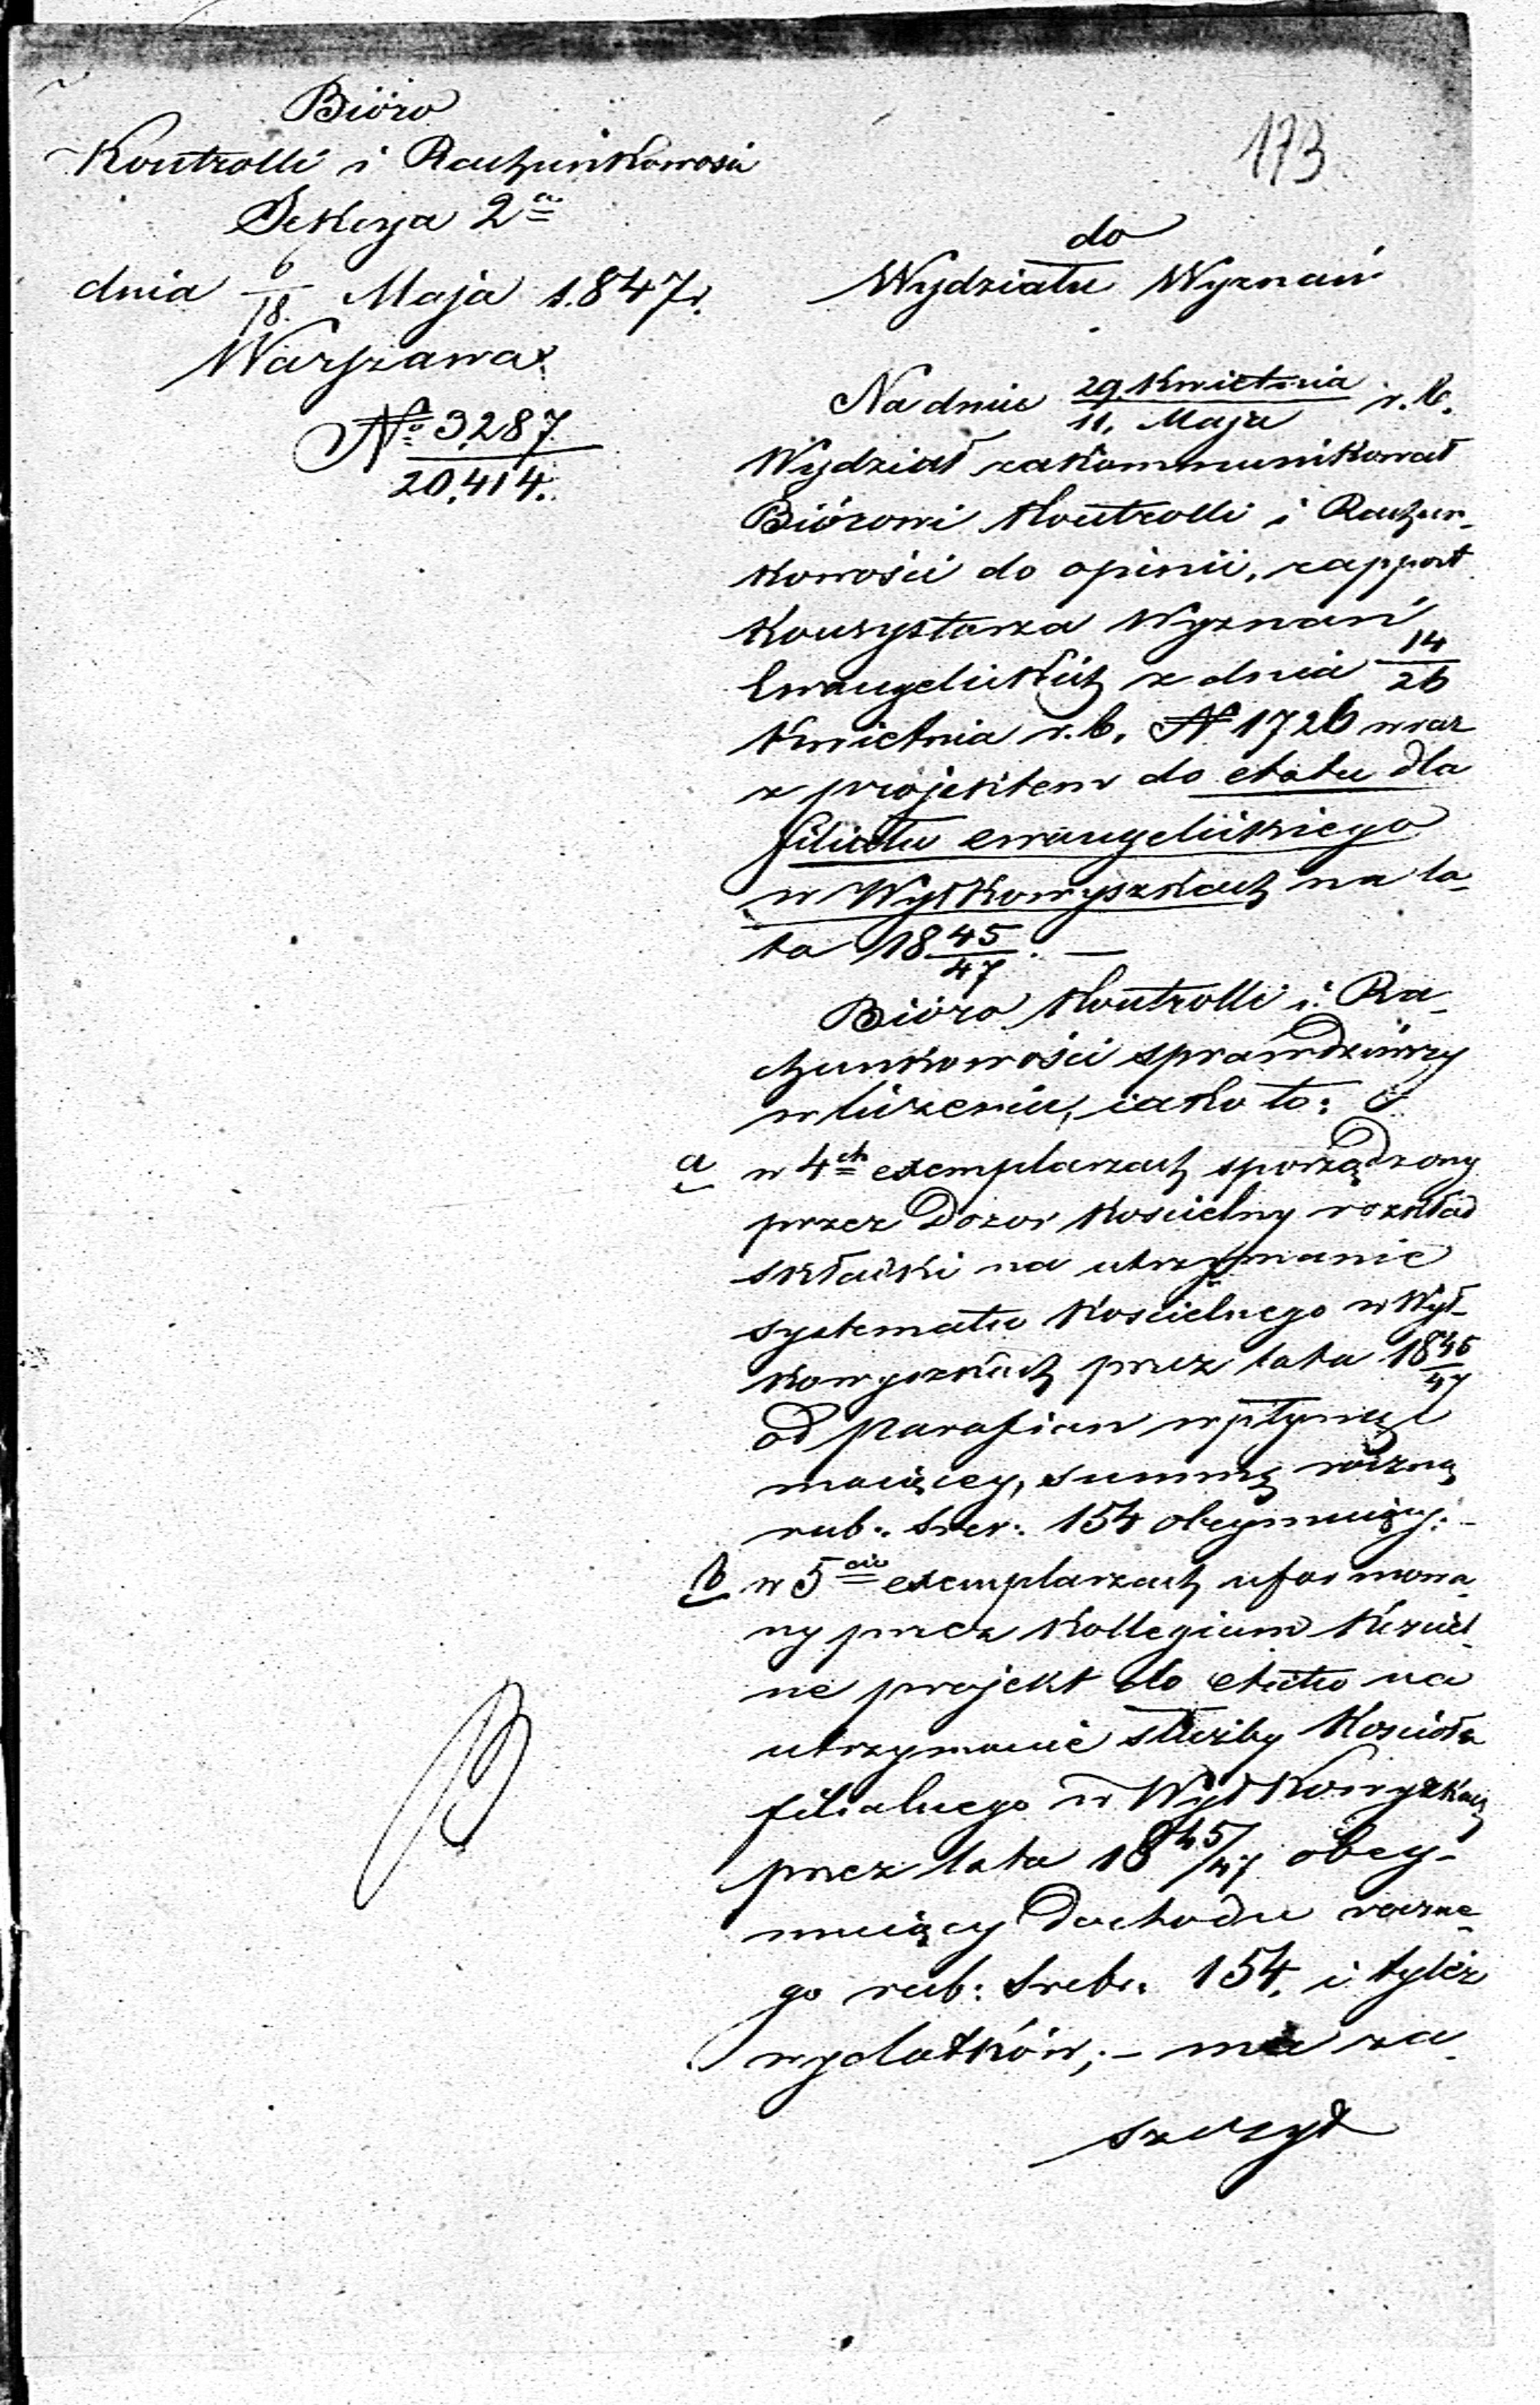 Bióro
Kontrolli i Rachunkowości
Sekcya 2a
dnia 6/18 Maja 1.847 r.
Warszawa.
No 3,287
20,414.
173
do
Wydziału Wyznań
Na dniu 29 Kwietnia / 11. Maja r. b.
Wydział zakommunikował
Biórowi Kontrolli i Rachun-
kowości do opinii, rapport
Konsystorza Wyznań
Ewangelickich z dnia 14/26
Kwietnia r. b. N 1726 wraz
z projektem do etatu dla
filiału ewangelickiego
w Wyłkowyszkach na la-
ta 18 45/47. —
Bióro Kontrolli i Ra-
chunkowości sprawdziwszy
w liczeniu, iako to:
a w 4ch exemplarzach sporządzony
przez Dozór Kościelny rozkład
składki na utrzymanie
systematu Kościelnego w Wył-
kowyszkach przez lata 18 45/47
od Parafian wpłynąć
maiącey, summę roczną
rub: srer: 154 obeymuiący: -
b w 5ciu exemplarzach uformowa-
ny przez Kollegium Kościel-
ne projekt do etatu na
utrzymanie służby Kościoła
filialnego w Wyłkowyszkach
przez lata 18 45/47 obey-
muiący dochodu roczne-
go rub: srebr: 154. i tyleż
wydatków; - ma za-
szczyt